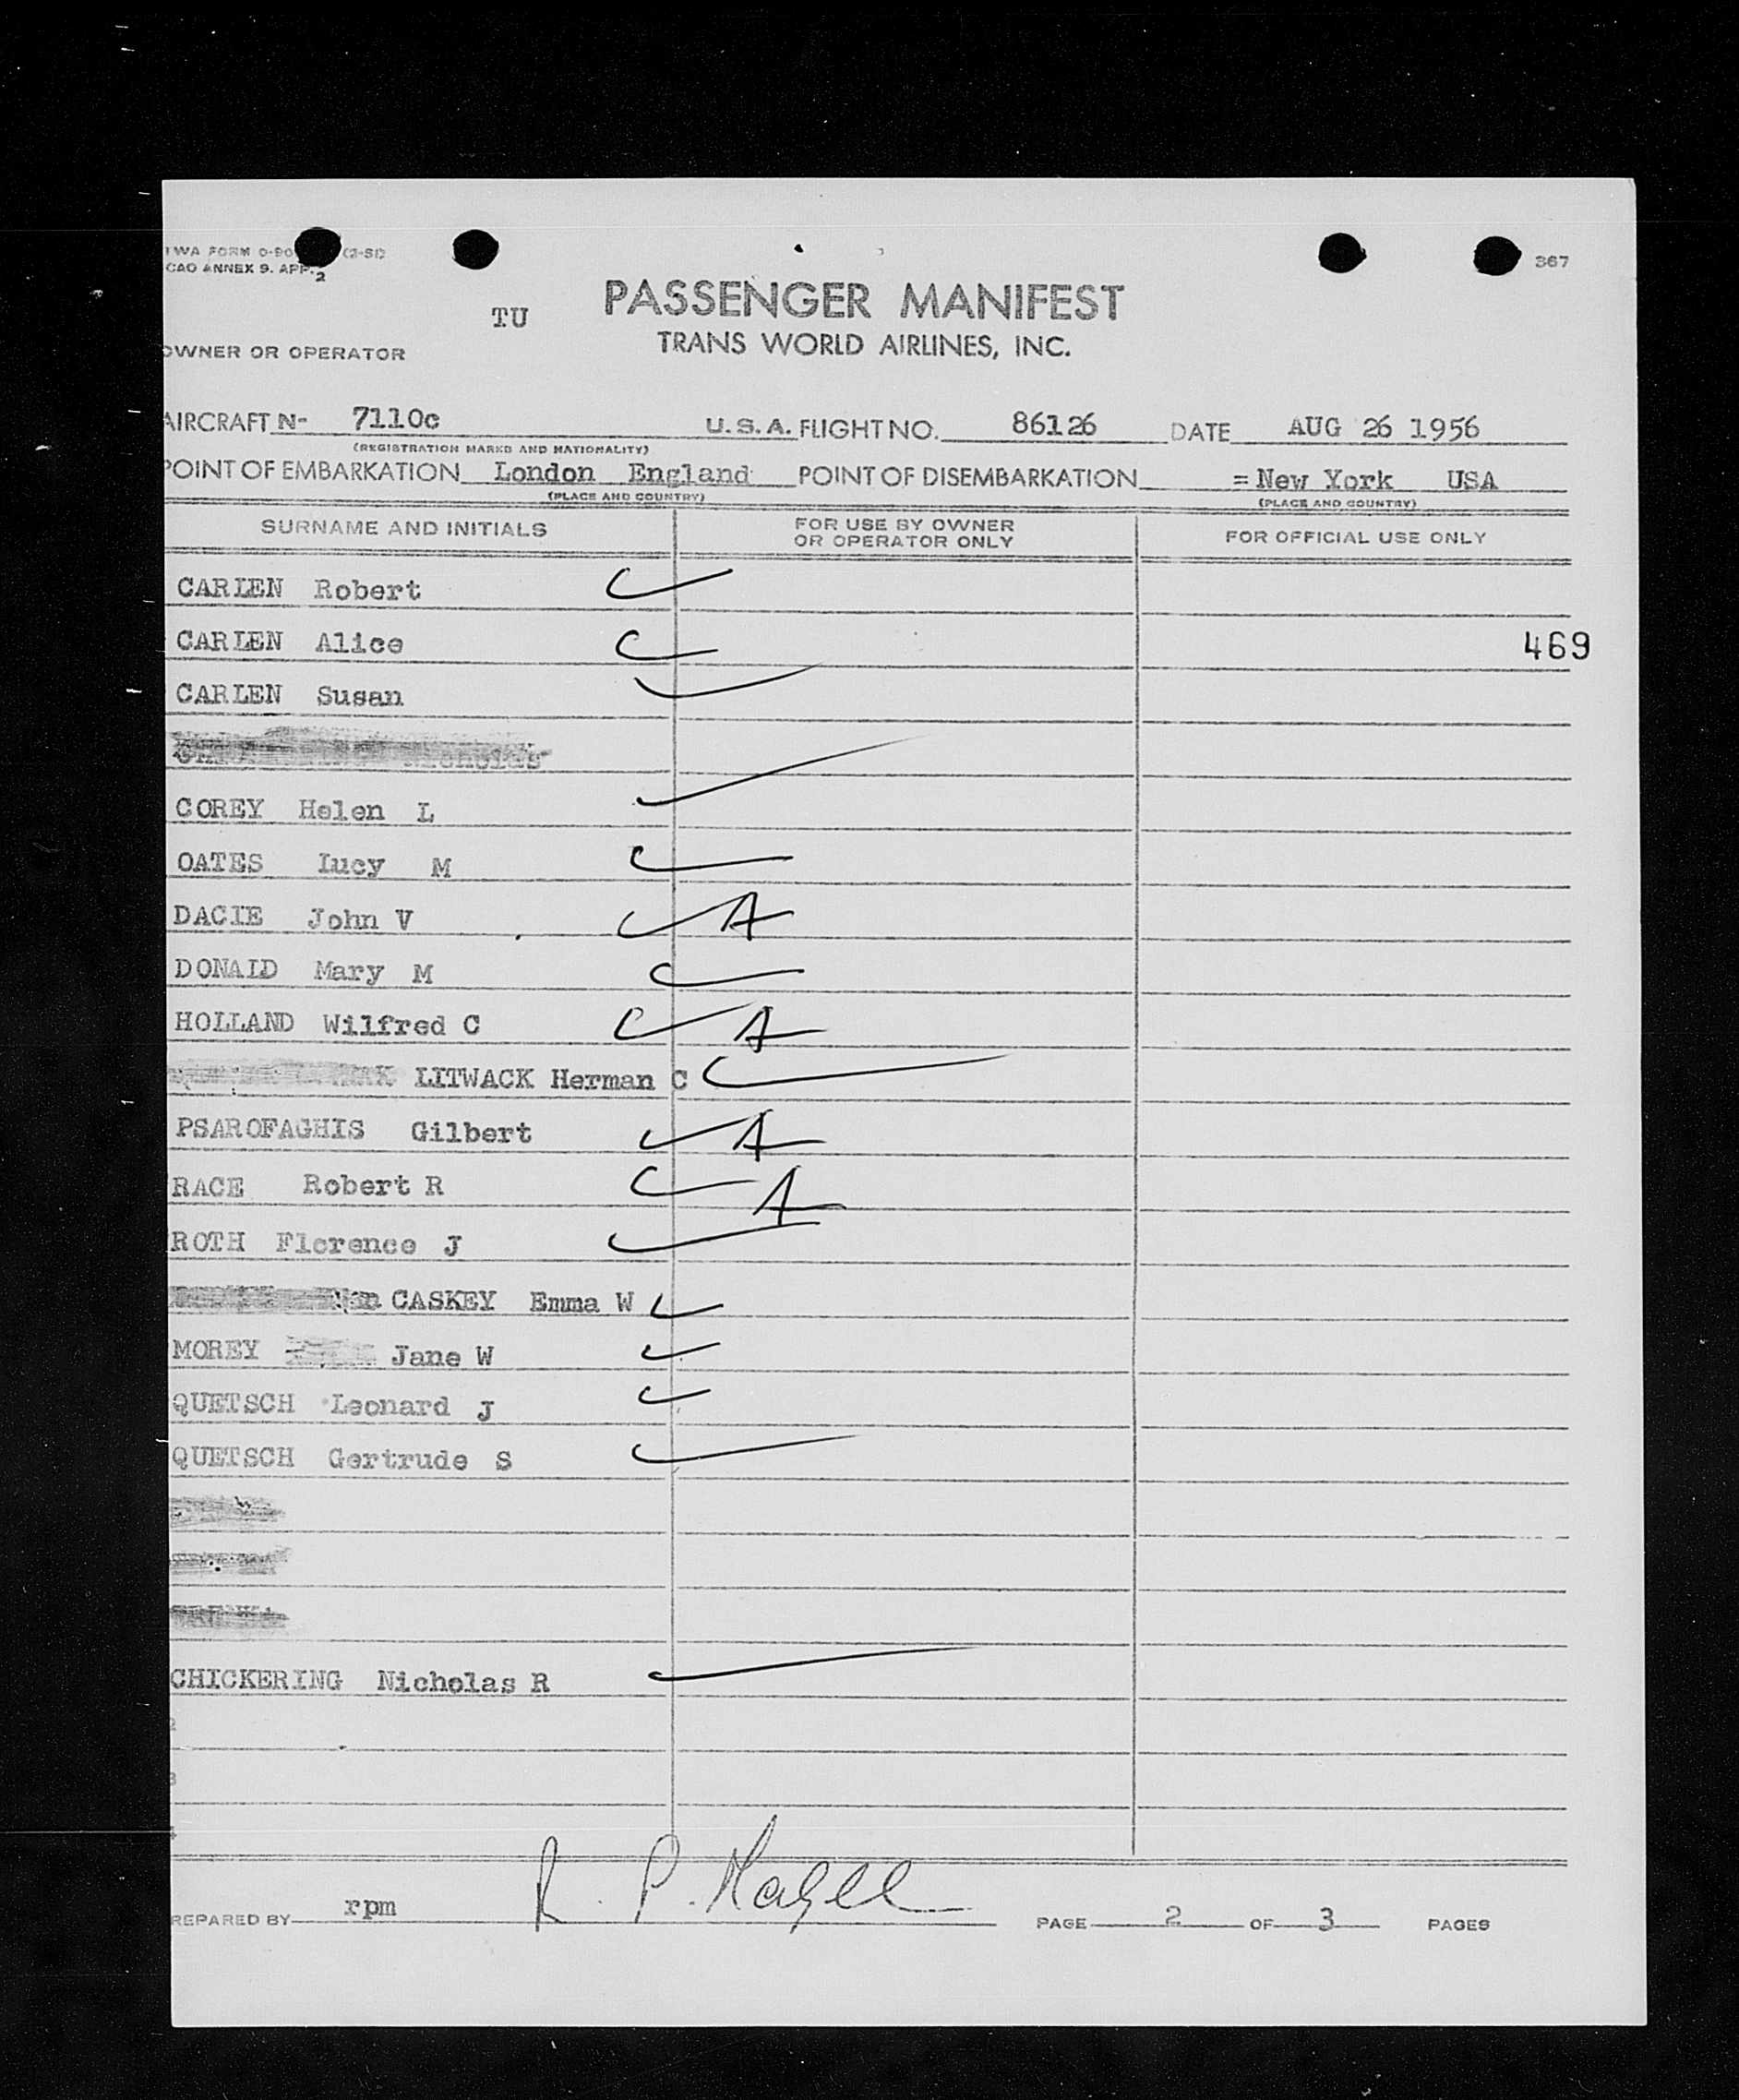 TWA FORM 0-90 (2-51)
367
CAO ANNEX 9. APP. 2
TU PASSENGER MANIFEST
TRANS WORLD AIRLINES, INC.
OWNER OR OPERATOR
AIRCRAFT N- 7110c U.S.A. FLIGHT NO. 86126 DATE AUG 26 1956
(REGISTRATION MARKS AND NATIONALITY)
POINT OF EMBARKATION London England POINT OF DISEMBARKATION = New York USA
(PLACE AND COUNTRY) (PLACE AND COUNTRY)
SURNAME AND INITIALS FOR USE BY OWNER OR OPERATOR ONLY FOR OFFICIAL USE ONLY
CARLEN Robert
CARLEN Alice 469
CARLEN Susan
COREY Helen L
OATES Lucy M
DACIE John V A
DONALD Mary M
HOLLAND Wilfred C A
LITWACK Herman C
PSAROFAGHIS Gilbert A
RACE Robert R A
ROTH Florence J
CASKEY Emma W
MOREY Jane W
QUETSCH Leonard J
QUETSCH Gertrude S
CHICKERING Nicholas R
2
3
4
REPARED BY rpm R. P. Magee PAGE 2 OF 3 PAGES